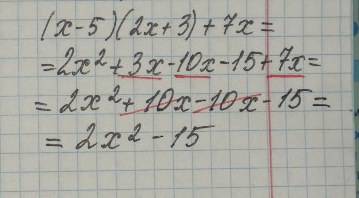 (x-5)(2x+3)+7x=
=2x²+3x-10x-15+7x=
=2x²+10x-10x-15=
=2x²-15